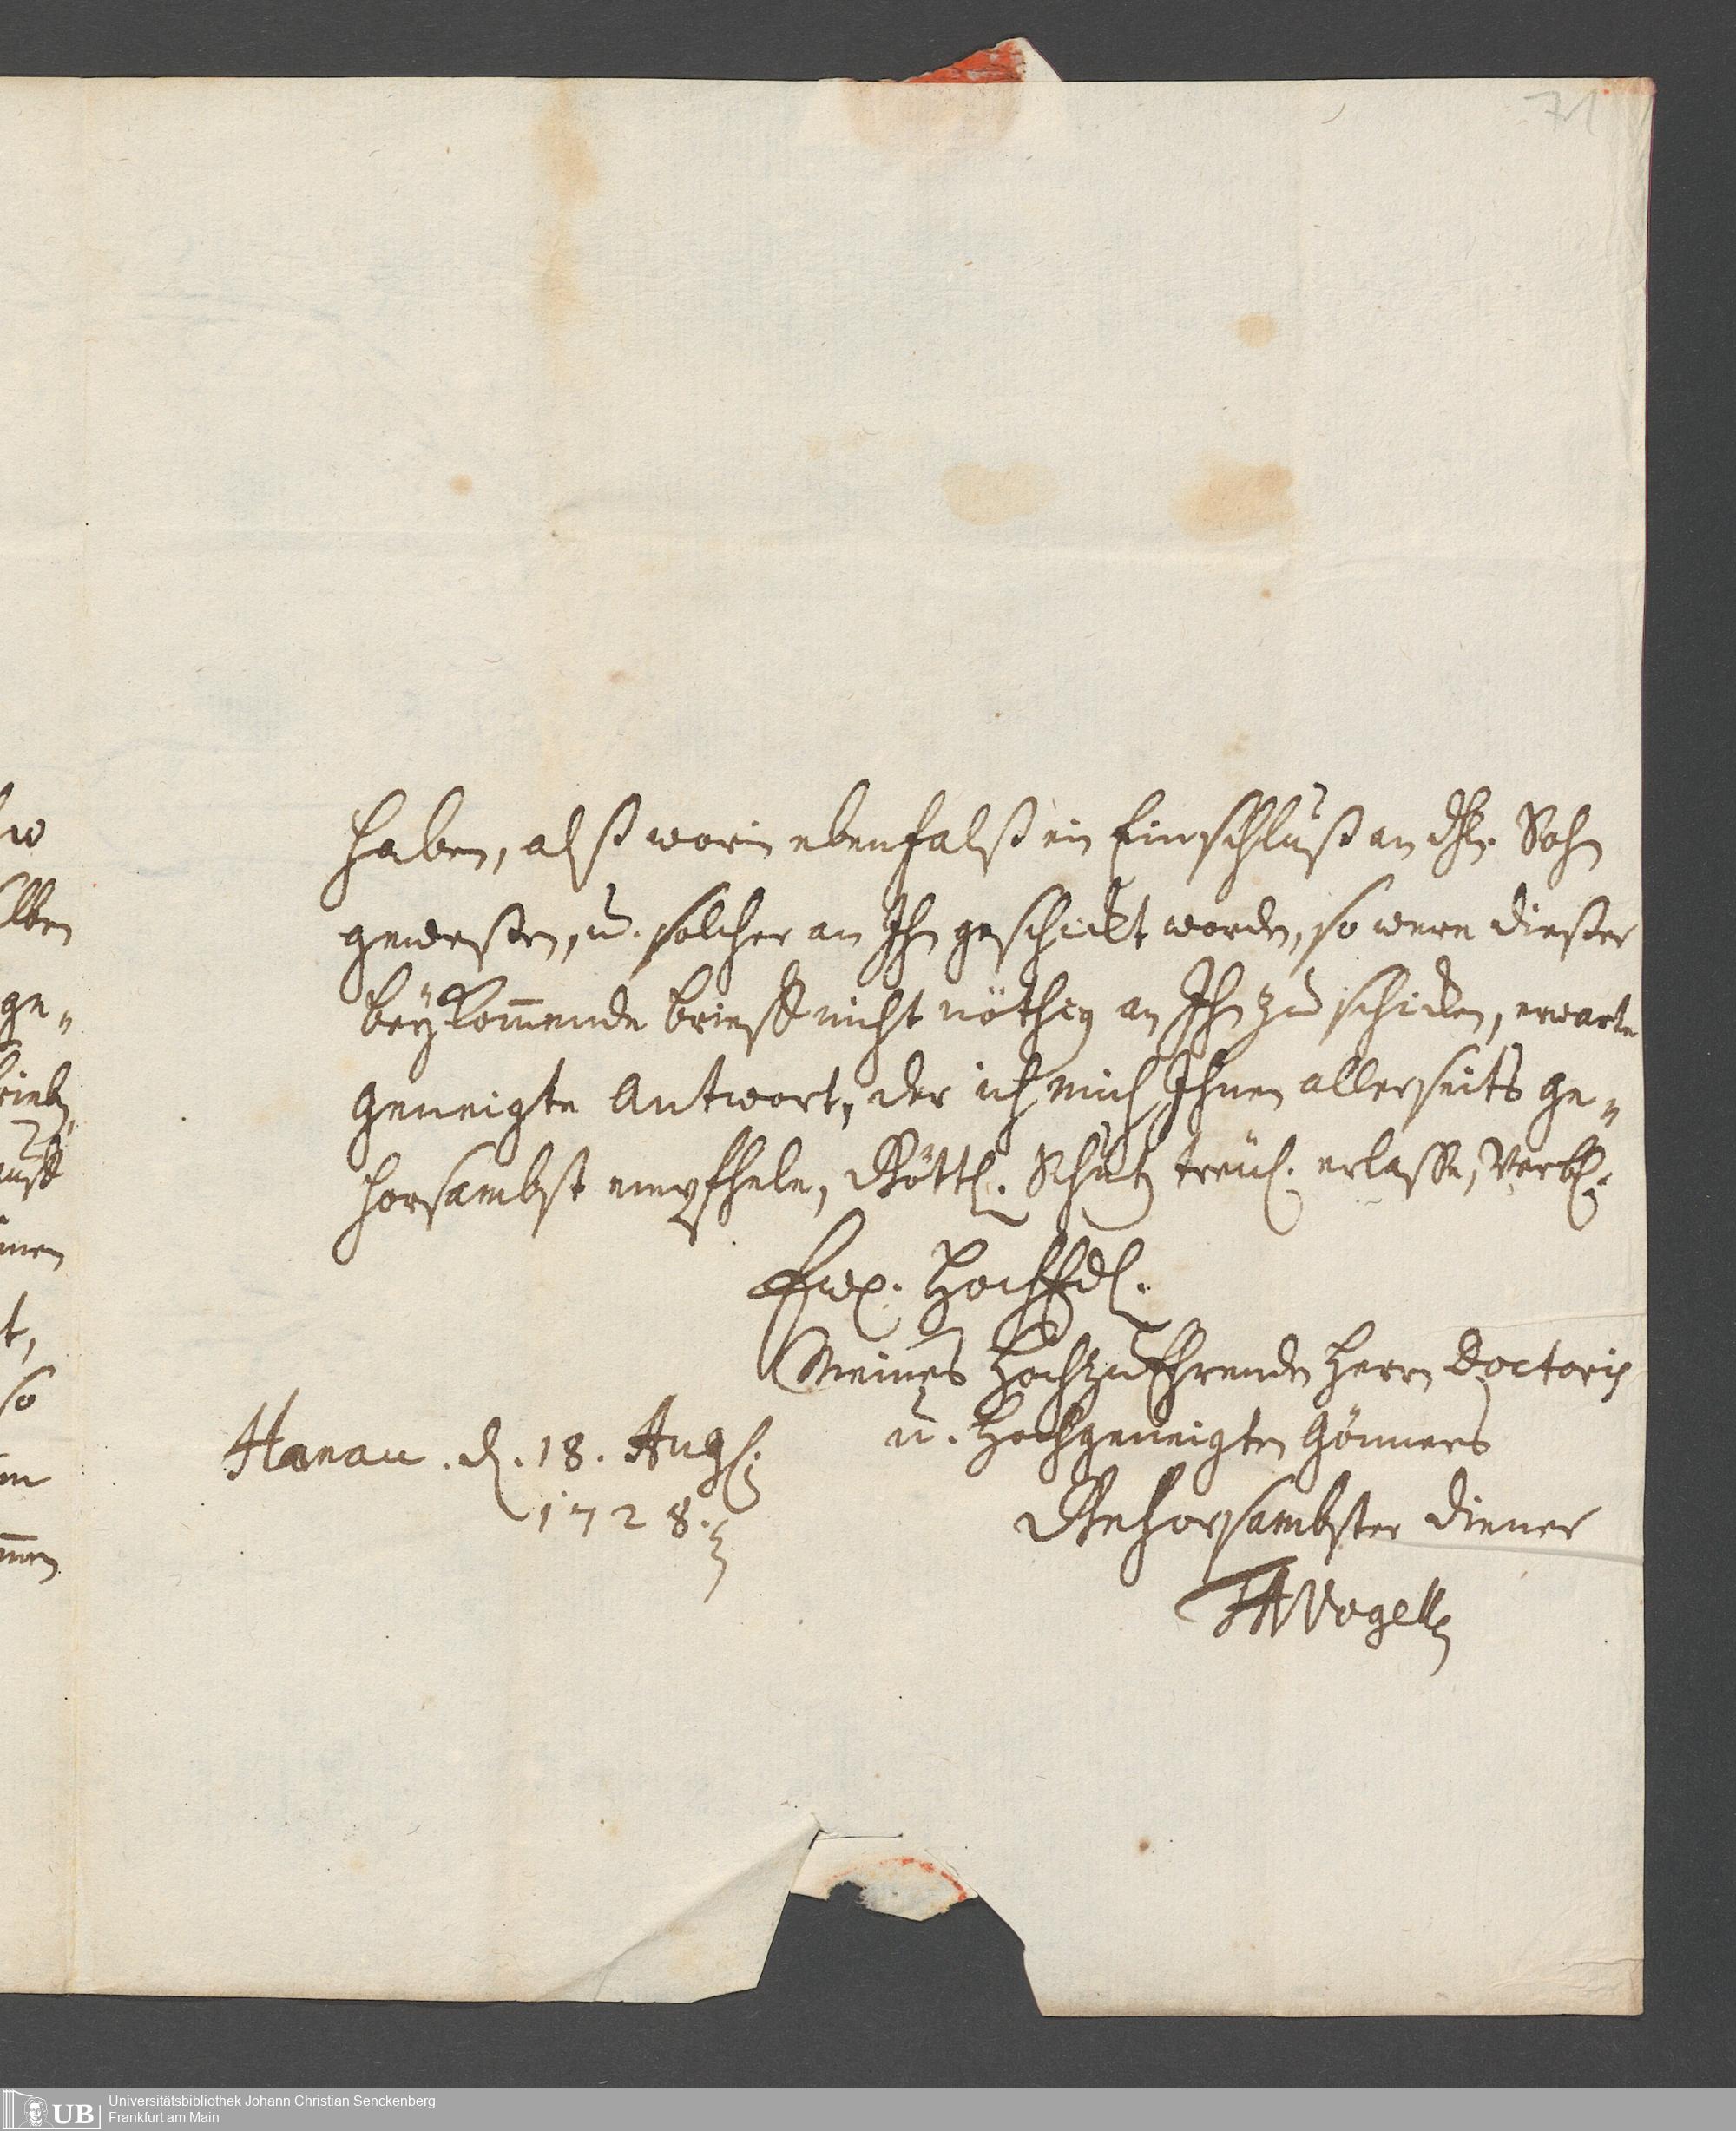 71
haben, alß worin ebenfalß ein Einschluß an dhn. Sohn
geweßen, u. solcher an Ihn geschickt worden, so were dießer
beÿkom̄ende brieff nicht nöthig an Ihn zu schicken, erwarte
geneigte Antwort, der ich mich Ihnen allerseits ge„
horsambst empfhele, Göttl. Schutz treul. erlasse, Verbl.
Ew. HochEdl.
Meines HochzuEhrenden Herrn Doctoris
u. Hochgeneigten Gönners
Hanau. d. 18. Aug.
1728.
Gehorsambster diener
Vogell
w
lben
ge„
so
t,
UB
Universitätsbibliothek Johann Christian Senckenberg
Frankfurt am Main